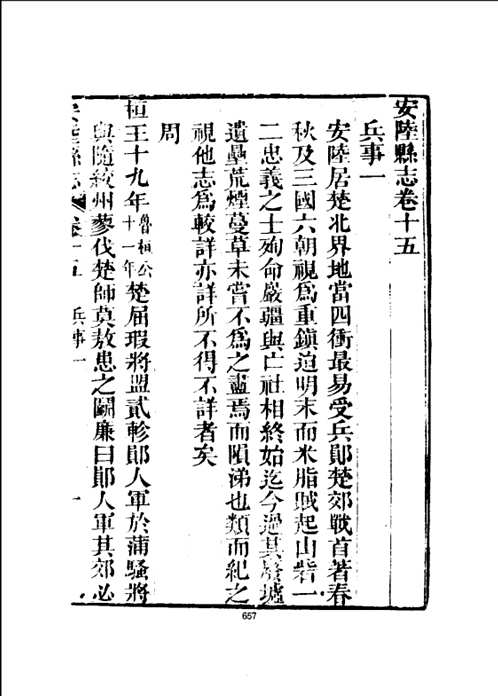 安陸縣志卷十五
兵事一
安陸居楚北界地當四衝最易受兵鄖楚郊戰首著春
秋及三國六朝視爲重鎭迨明末而米脂賊起山砦一
二忠義之士殉命嚴疆與亡社相終始迄今過其廢墟
遺壘荒煙蔓草未嘗不爲之盡焉而隕涕也類而紀之
視他志爲較詳亦詳所不得不詳者矣
周
桓王十九年魯桓公十一年楚屈瑕將盟貳軫鄖人軍於蒲騷將
與隨絞州蓼伐楚師莫敖患之鬬廉曰鄖人軍其郊必
安陸縣志 卷十五 兵事一 一
657